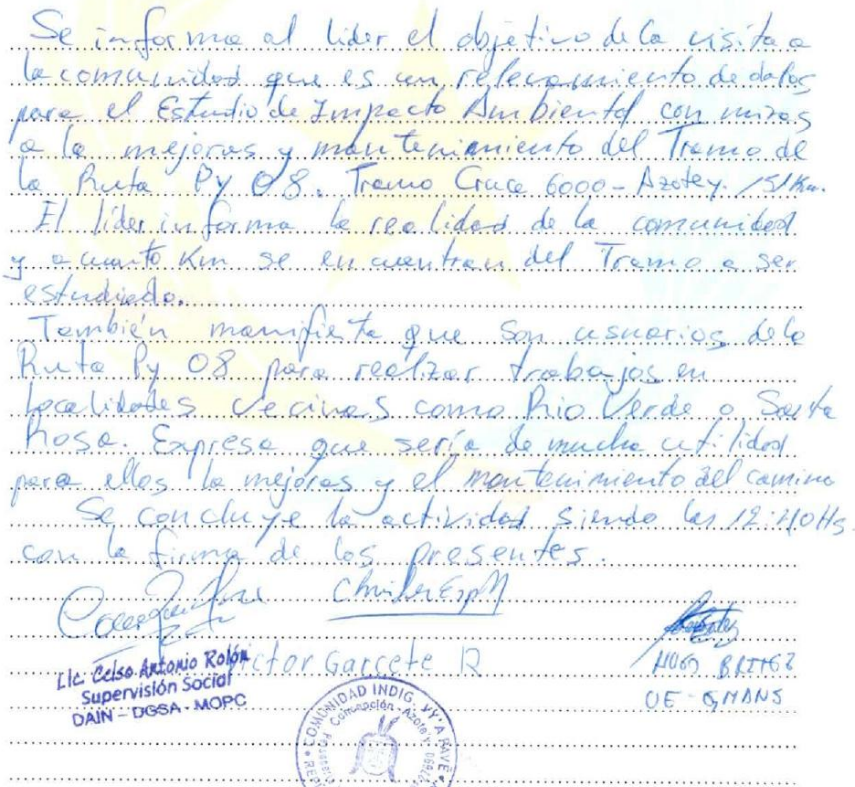 Se informa al lider el objetivo de la visita a
la comunidad que es un relevamiento de datos
para el Estudio de Impacto Ambiental con miras
a la mejoras y mantenimiento del Tramo de
la Ruta Py 08. Tramo Cruce 6000 - Azotey. 151Km.
El líder informa la realidad de la comunidad
y a cuanto Km se encuentran del Tramo a ser
estudiado.
También manifiesta que son usuarios de la
Ruta Py 08 para realizar trabajos en
localidades vecinas como Rio Verde o Santa
Rosa. Expresa que sería de mucha utilidad
para ellos la mejoras y el mantenimiento del camino
Se concluye la actividad siendo las 12:40Hs.
con la firma de los presentes.
Lic. Celso Antonio Rolón
Supervisión Social
DAIN - DGSA - MOPC
ctor Garcete R
HUGO BRITEZ
UE-
COMUNIDAD INDIG. VY'A PAVÊ
Concepción - Azotey